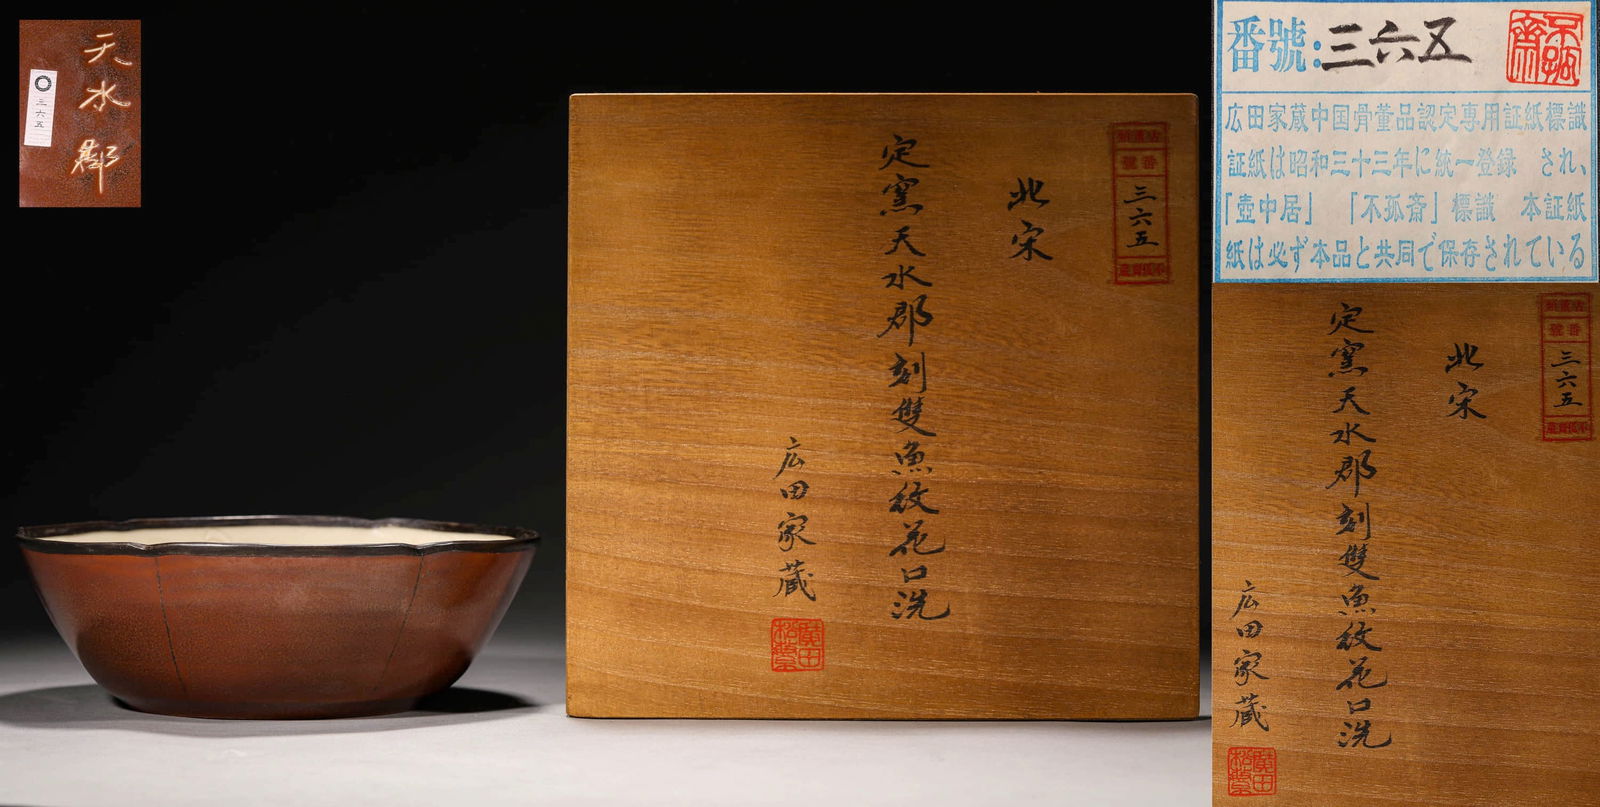 天水郡
三六五
番號:三六五
不孤齋
広田家蔵中国骨董品認定専用証紙標識
証紙は昭和三十三年に統一登録 され、
「壺中居」 「不孤斎」標識 本証紙
紙は必ず本品と共同で保存されている
番號
三六五
北宋
定窯天水郡刻雙魚紋花口洗
広田家蔵
番號
三六五
北宋
定窯天水郡刻雙魚紋花口洗
広田家蔵